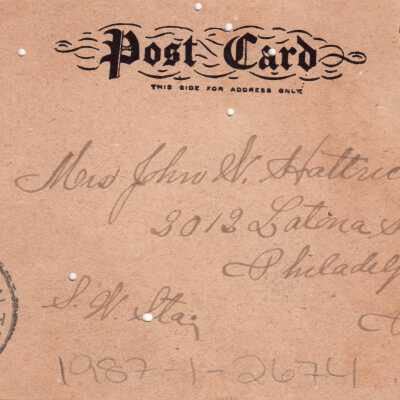 Post Card
THIS SIDE FOR ADDRESS ONLY.
Mrs John W. Hattric
3012 Latona S
Philadelp
S. W. Sta,
1987-1-2674